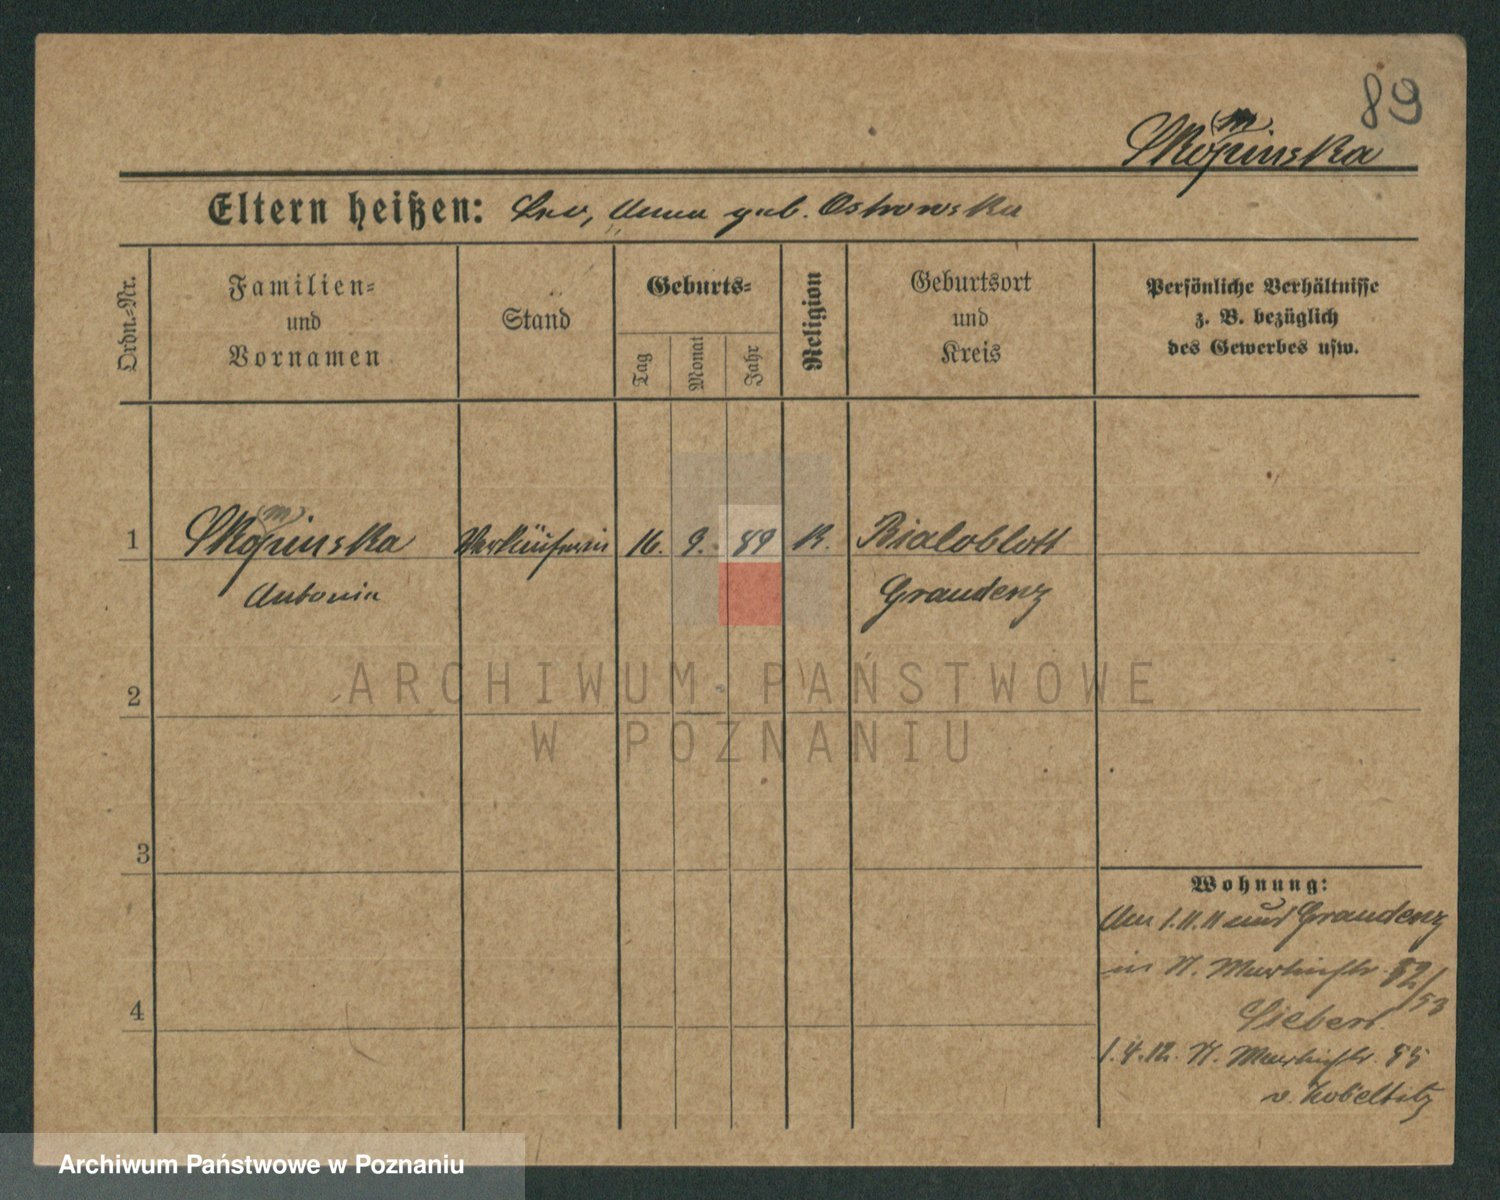 89
(m)
Skopinska
Eltern heißen: Leo, Anna geb. Ostrowska
Ordn.-Nr.
Familien-
und
Vornamen
Stand
Geburts-
Tag
Monat
Jahr
Religion
Geburtsort
und
Kreis
Persönliche Verhältnisse
z. B. bezüglich
des Gewerbes usw.
(m)
1 Skopinska Verkäuferin 16. 9. 89 K. Bialoblott
Antonia Graudenz
2
ARCHIWUM PAŃSTWOWE
W POZNANIU
3
Wohnung:
Am 1.11.11 aus Graudenz
in St. Martinstr. 82/53
4
Siebert
1.4.12. St. Martinstr. 55
v. Zobeltitz
Archiwum Państwowe w Poznaniu